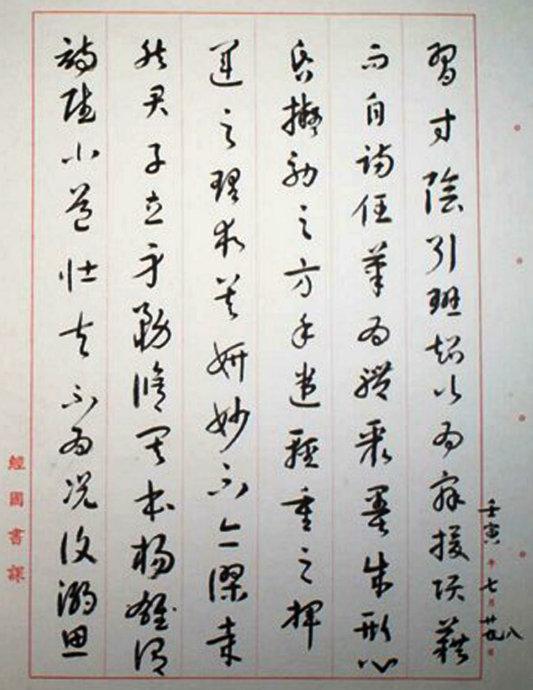 習寸陰引班超以為辭援項籍
而自滿任筆為體聚墨成形心
昏擬効之方手迷輕重之揮
運之理求其妍妙不亦謬哉
然君子立身務脩其本楊雄謂
詩賦小道壯夫不為況復溺思
壬寅年七月廿八日
經國書課